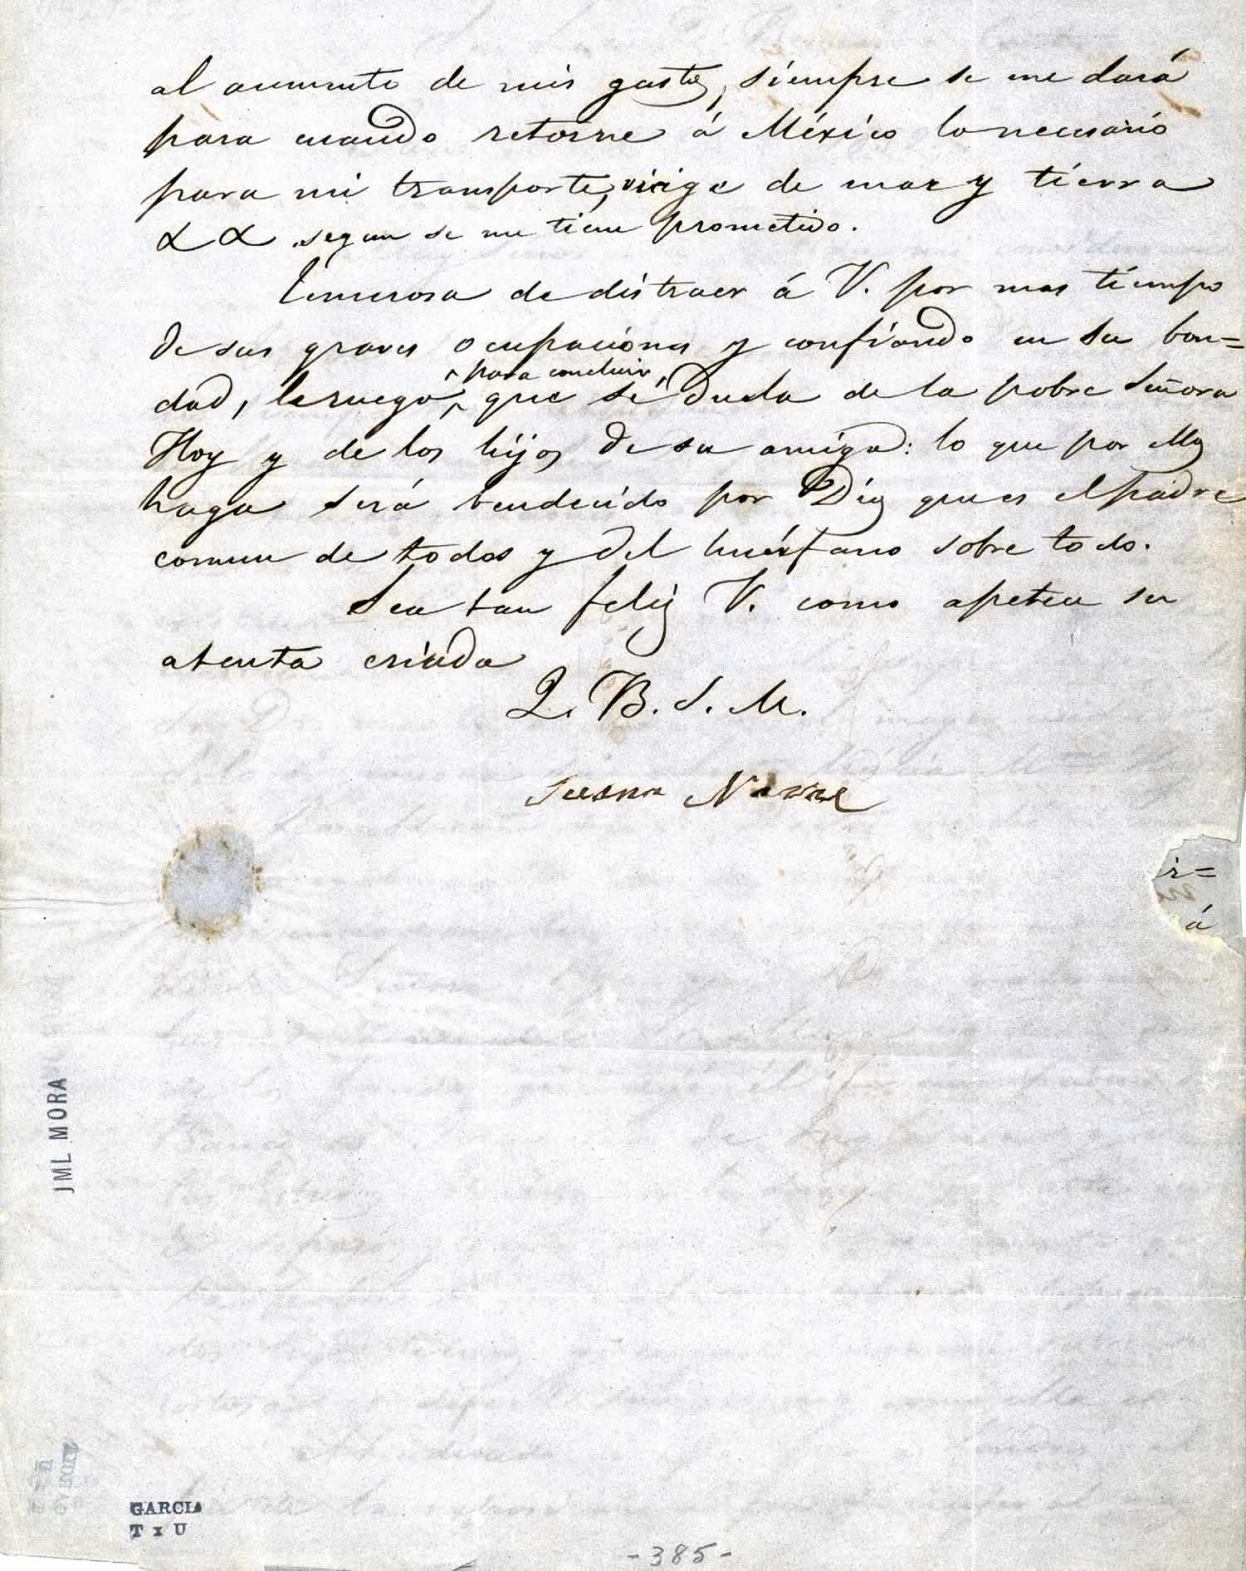 al aumento de mis gastos, siempre se me dará
para cuando retorne á México lo necesario
para mi transporte, viage de mar y tierra
&& segun se me tiene prometido.
Temerosa de distraer á V. por mas tiempo
de sus graves ocupaciones y confiando en su bon=
^para concluir,
dad, le ruego^ que se duela de la pobre Señora
Hoy y de los hijos de su amiga: lo que por Ellos
haga será bendecido por Dios que es el padre
comun de todos y del huérfano sobre todo.
Sea tan feliz V. como apetece su
atenta criada
Q. B. S. M.
Susana
ir=
á
JML MORA
GARCIA
T x U
-385-